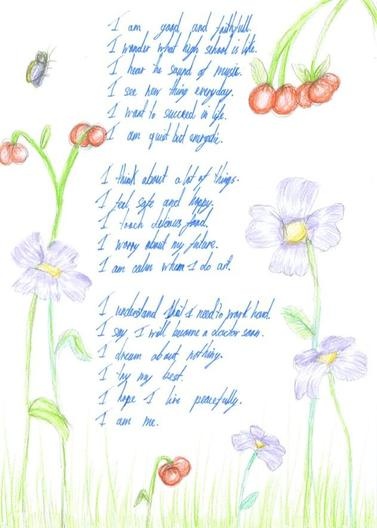 I am good and faithfull.
I wonder what high school is like.
I hear the sound of music.
I see new thing everyday.
I want to succeed in life.
I am quiet but energetic.
I think about a lot of things.
I feel safe and happy.
I touch delicous food.
I worry about my future.
I am calm when I do art.
I understand that I need to work hard.
I say, I will become a doctor soon.
I dream about nothing.
I try my best.
I hope I live peacefully.
I am me.